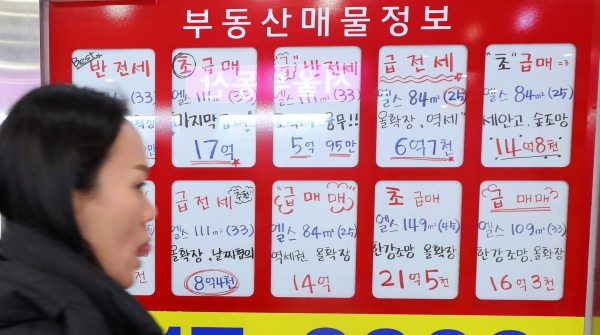 부동산매물정보
Best
반전세
(33)
초급매
엘스 111㎡ (33)
17억
급 반전세
엘스 111㎡ (33)
5억 95만
급전세
엘스 84㎡ (25)
올확장, 역세
6억7천
"초" 급매
엘스 84㎡ (25)
세안고, 숲조망
14억8천
급전세 추천
엘스 111㎡ (33)
올확장, 날짜협의
8억4천
급매매
엘스 84㎡ (25)
역세권 올확장
14억
초급매
엘스 149㎡ (45)
한강조망 올확장
21억5천
급매매
엘스 109㎡ (33)
한강조망, 올확장
16억3천